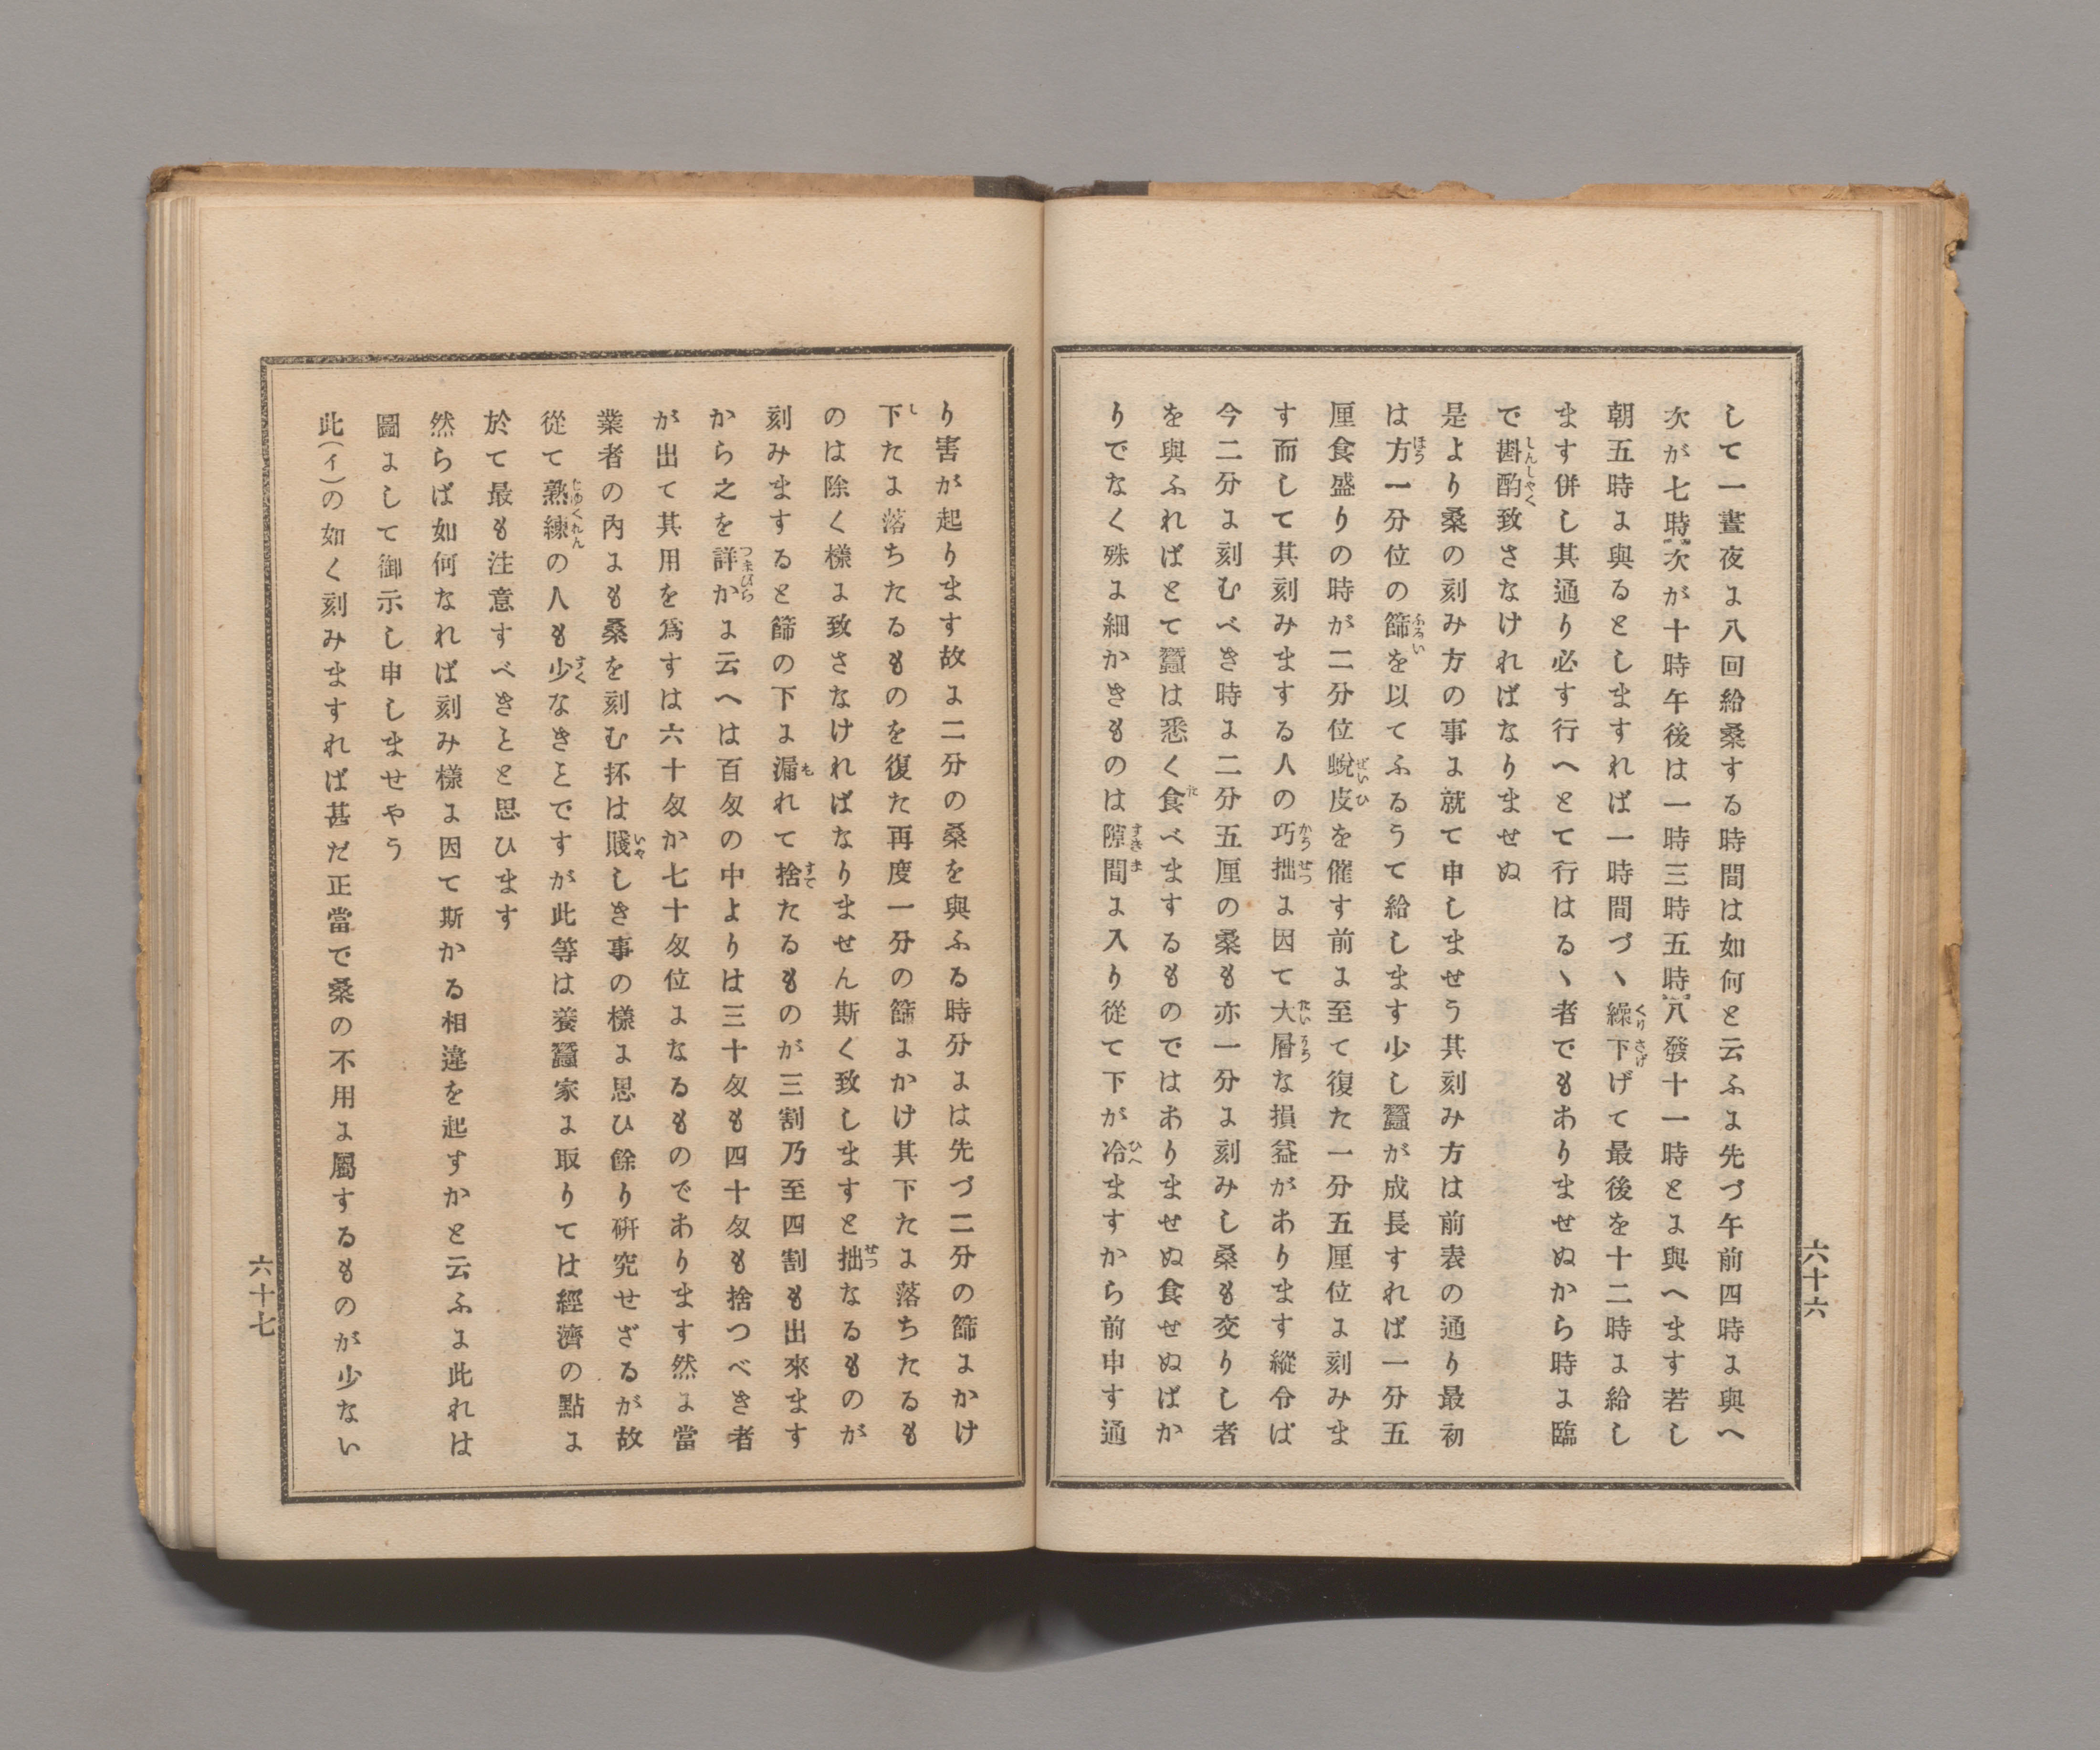 して一晝夜に八回給桑する時間は如何と云ふに先づ午前四時に與へ
次が七時次が十時午後は一時三時五時八時十一時とに與へます若し
朝五時に與るとしますれば一時間づゝ繰下げて最後を十二時に給し
ます併し其通り必す行へとて行はるゝ者でもありませぬから時に臨
で斟酌致さなければなりませぬ
是より桑の刻み方の事に就て申しませう其刻み方は前表の通り最初
は方一分位の篩を以てふるうて給します少し蠶が成長すれば一分五
厘食盛りの時が二分位蛻皮を催す前に至て復た一分五厘位に刻みま
す而して其刻みまする人の巧拙に因て大層な損益があります縱令ば
今二分に刻むべき時に二分五厘の桑も亦一分に刻みし桑も交りし者
を與ふればとて蠶は悉く食べまするものではありませぬ食せぬばか
りでなく殊に細かきものは隙間に入り從て下が冷ますから前申す通
六十六
り害が起ります故に二分の桑を與ふる時分には先づ二分の篩にかけ
下たに落ちたるものを復た再度一分の篩にかけ其下たに落ちたるも
のは除く樣に致さなければなりません斯く致しますと拙なるものが
刻みますると篩の下に漏れて捨たるものが三割乃至四割も出來ます
から之を詳かに云へは百匁の中よりは三十匁も四十匁も捨つべき者
が出て其用を爲すは六十匁か七十匁位になるものであります然に當
業者の內にも桑を刻む抔は賤しき事の樣に思ひ餘り硏究せざるが故
從て熟練の人も少なきことですが此等は養蠶家に取りては經濟の點に
於て最も注意すべきことと思ひます
然らば如何なれば刻み樣に因て斯かる相違を起すかと云ふに此れは
圖にして御示し申しませやう
此(イ)の如く刻みますれば甚だ正當で桑の不用に屬するものが少ない
六十七